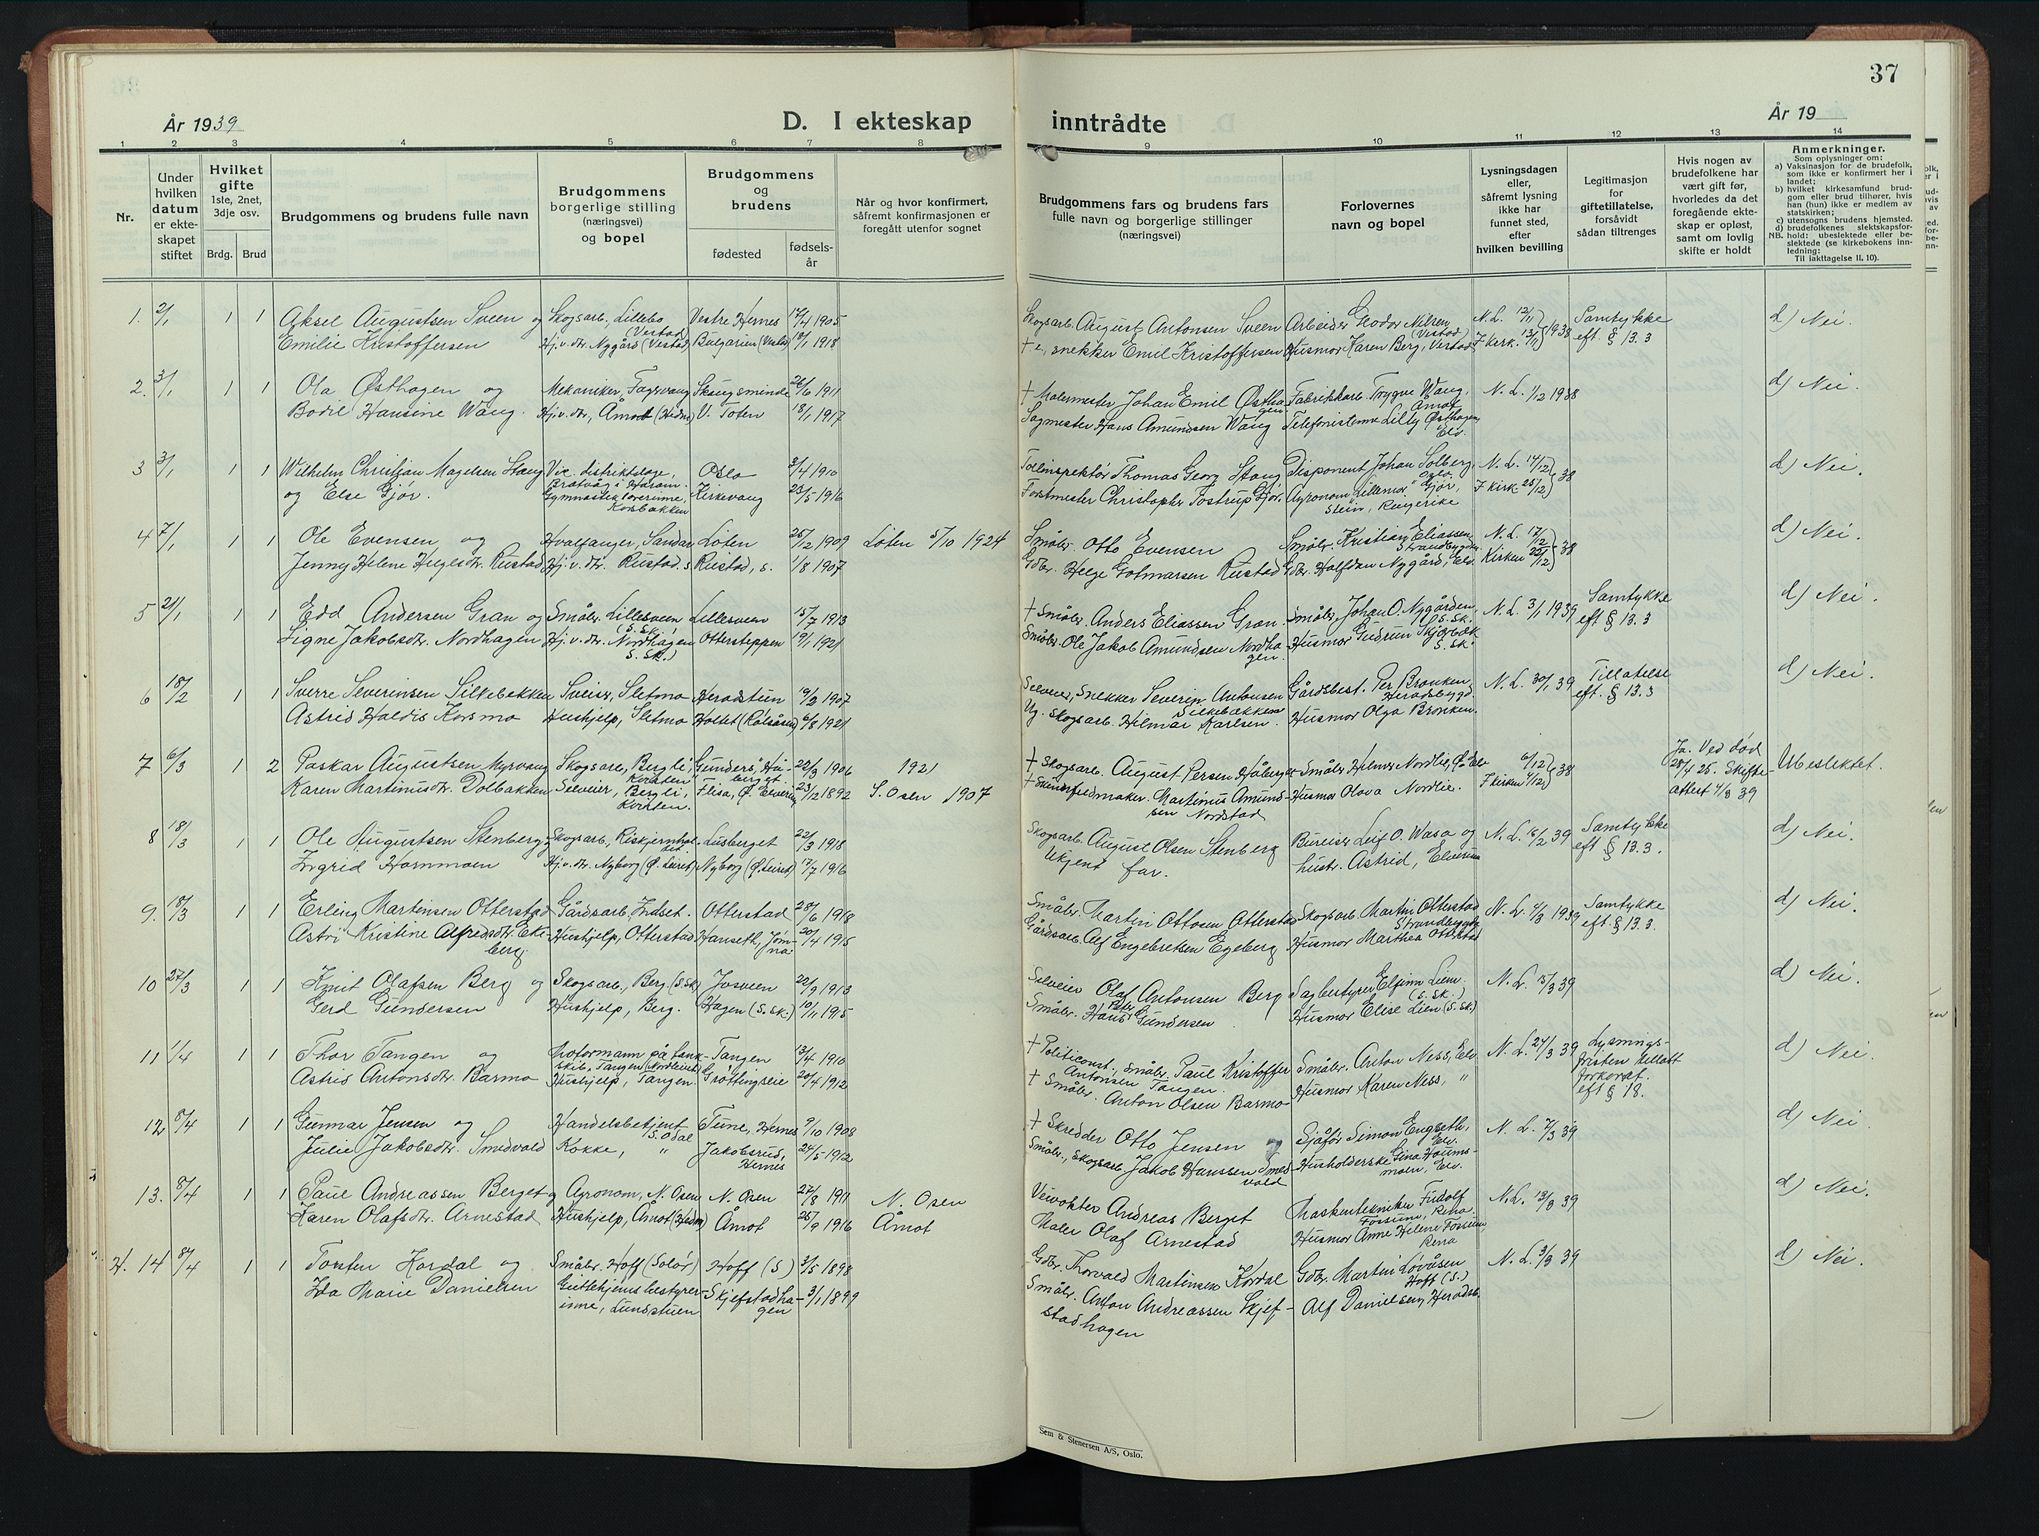 År 1939
D. I ekteskap
inntrådte
År 19
37
1 2 3 4 5 6 7 8 9 10 11 12 13 14
Nr.
Under hvilken datum er ekteskapet stiftet
Hvilket gifte 1ste, 2net, 3dje osv.
Brdg. Brud
Brudgommens og brudens fulle navn
Brudgommens borgerlige stilling (næringsvei) og bopel
Brudgommens og brudens
fødested
fødselsår
Når og hvor konfirmert, såfremt konfirmasjonen er foregått utenfor sognet
Brudgommens fars og brudens fars fulle navn og borgerlige stillinger (næringsvei)
Forlovernes navn og bopel
Lysningsdagen eller, såfremt lysning ikke har funnet sted, efter hvilken bevilling
Legitimasjon for giftetillatelse, forsåvidt sådan tiltrenges
Hvis nogen av brudefolkene har vært gift før, hvorledes da det foregående ekteskap er opløst, samt om lovlig skifte er holdt
Anmerkninger.
Som oplysninger om:
a) Vaksinasjon for de brudefolk, som ikke er konfirmert her i landet;
b) hvilket kirkesamfund brudgom eller brud tilhører, hvis han (hun) ikke er medlem av statskirken;
c) utensogns brudens hjemsted.
d) brudefolkenes slektskapsforhold: ubeslektede eller beslektede (se kirkebokens innledning:
NB.
Til iakttagelse II, 10).
1. 2/1 1 1 Aksel Augustsen Sveen og Skogsarb., Lillebo (Vestad) Vestre Hernes 17/4 1905
Emilie Kristoffersen Hj.v.dr. Nygård (Vestad) Bulgarien (Vestad) 18/1 1918
Skogsarb. August Antonsen Sveen Arbeider Teodor Nilsen (Vestad) N.L. 12/11 F kirk. 13/11 1938 Samtykke eft. § 13.3 d) Nei.
snekker Emil Kristoffersen Husmor Karen Berg, Vestad
2. 3/1 1 1 Ola Østhagen og Mekaniker, Fagervang Skaugsminde 26/6 1911
Bodil Hansine Wang. Hj.v.dr, Åmot (Hedm) V. Toten 18/1 1917
† Malermester Johan Emil Østhagen Fabrikkarb. Trygve Wang, Åmot N.L. 1/12 1938 d) Nei.
Sagmester Hans Amundsen Wang Telefonistinne Lilly Østhagen Elv.
3 3/1 1 1 Wilhelm Christian Magelsen Stang Vic. distriktslege, Bratvåg i Haram. Oslo 3/4 1910
og Else Gjør. Gymnastiklærerinne, Korsbakken Kirkevang 23/5 1916
Tollinspektør Thomas Georg Stang Disponent Johan Solberg, Oslo N.L. 14/12 F kirk. 25/12 38 d) Nei.
Forstmester Christopher Tostrup Gjør. Agronom "Lillemor" Gjør, Stein, Ringerike
4 7/1 1 1 Ole Evensen og Hvalfanger, Sandar Løten 25/12 1909 Løten 5/10 1924
Jenny Helene Helgesdtr. Rustad Hj.v.dr. Rustad. s Rustad, s. 1/8 1907
Småbr. Otto Evensen Småbr. Kristian Eliassen, Strandbygda N.L. 17/12 Kirken 22/12 38 d) Nei.
Gdbr. Helge Golmarsen Rustad Gdbr. Halfdan Nygård, Elv.
5 21/1 1 1 Edd Andersen Gran og Småbr. Lillesveen (S.Sk.) Lillesveen 15/7 1913
Signe Jakobsdtr. Nordhagen Hj.v.dr. Nordhagen S.Sk.) Otterstippen 19/1 1921
† Småbr. Anders Eliassen Gran. Småbr. Johan O. Nygården, (S.Sk. N.L. 3/1 1939 Samtykke eft § 13.3 d) Nei.
Småbr. Ole Jakob Amundsen Nordhagen Husmor Gudrun Skjærbæk S.Sk.
6 18/2 1 1 Sverre Severinsen Silkebakken Sveiser, Sletmo Heradstun 19/2 1907
Astrid Haldis Korsmo Hushjelp, Sletmo Holtet (Rølsåsen) 6/8 1921
Selveier, Snekker Severin Antonsen Silkebakken Gårdsbest. Per Bronken, Heradsbygd. N.L. 30/1 39 Tillatelse eft. § 13.3 d) Nei
Ug. Skogsarb. Hilmar Karlsen. Husmor Olga Bronken.
7 6/3 1 2 Paskar Augustsen Myrvang Skogsarb., Bergli, Kirkslen Gunders, Håberget 22/3 1906 1921
Karen Martinusdtr. Dolbakken Selveier, Bergli, Flisa, Ø. Elverum 23/12 1892 S. Osen 1907
† Skogsarb. August Persen Håberget Småbr. Helmer Nordlie, Ø. Elv 6/12 F kirken 4/12 38 Ja. Ved død 28/4 25. Skifteattest 4/3 39 Ubeslektet.
† Skindfeldmaker. Martinus Amundsen Nordstad Husmor Olava Nordlie.
8 18/3 1 1 Ole Augustsen Stenberg Skogsarb, Riskjernholtet Lusberget 22/3 1918
Ingrid Hornmoen Hj.v.dr. Nyborg (Ø. Leiret) Nyborg (Ø. Leiret) 17/7 1916
Skogsarb. August Olsen Stenberg Bureiser Leif O. Wasa og N.L. 16/2 39 Samtykke eft § 13.3. d) Nei.
Ukjent far. hustr. Astrid, Elverum
9. 18/3 1 1 Erling Martinsen Otterstad Gårdsarb. Indset. Otterstad 28/6 1918
Astri Kristine Alfredsdtr. Ekeberg. Hushjelp, Otterstad Hanseth, Jømna 20/4 1915
Småbr. Martin Ottosen Otterstad Skogsarb. Martin Otterstad Strandbygda N.L. 4/3 1939 Samtykke eft. § 13.3. d) Nei.
Gårdsarb. Alf Engebretsen Egeberg Husmor Marthea Otterstad
10 27/3 1 1 Knut Olafsen Berg og Skogsarb., Berg. (S.Sk) Josveen 22/9 1913
Gerd Gundersen Hushjelp, Berg. Hagen (S.Sk.) 10/11 1915
Selveier Olaf Antonsen Berg Sagbestyrer Elfinn Lien (S.Sk.) N.L. 15/3 39 d) Nei.
Småbr. Hans Peter Gundersen Husmor Elise Lien (S.Sk)
11 1/4 1 1 Thor Tangen og Motormann på tankskib, Tangen (Nordleiret) Tangen 13/4 1910
Astrid Antonsdtr. Barmo Hushjelp, Tangen. Grøttingslie 20/4 1912
† Politiconst., småbr. Paul Kristoffer Antonsen Tangen. Småbr. Anton Ness, Elv. N.L. 24/3 39 Lysningsfristen tillatt forkortet eft § 18. d) Nei.
† Småbr. Anton Olsen Barmo Husmor Karen Ness, "
12 8/4 1 1 Gunnar Jensen og Handelsbetjent S. Odal Tune, Hernes 9/10 1908
Julie Jakobsdtr. Smedvald Kokke, " Jakobsrud, Hernes 24/5 1912
† Skredder Otto Jensen og Sjåfør Simon Engseth, Elv. N.L. 7/3 39 d) Nei
Småbr., Skogsarb. Jakob Hanssen Smedvald Husholderske Gina Houmsmoen, Elv.
13. 8/4 1 1 Paul Andreassen Berget og Agronom, N. Osen N. Osen 27/8 1911 N. Osen
Karen Olafsdtr. Arnestad Hushjelp, Åmot (Hedm) Åmot 25/9 1916 Åmot
Veivokter Andreas Berget Maskintekniker Fridolf Fossum, Rena N.L. 13/3 39 d) Nei.
Maler Olaf Arnestad Husmor Anne Helene Fossum Rena
H. 14 8/4 1 1 Torsten Hordal og Småbr. Hoff (Solør) Hoff (S) 3/5 1898
Ida Marie Danielsen Guttehjemsbestyrerinne, Lundstuen Skjefstadhagen 3/1 1899
Gdbr. Thorvald Martinsen Kordal Gdbr. Martin Løvåsen Hoff (S.) N.L. 3/3 39 d) Nei.
Småbr. Anton Andreassen Skjefstadhagen Alf Danielsen, Heradsb.
Sem & Stenersen A/S, Oslo.